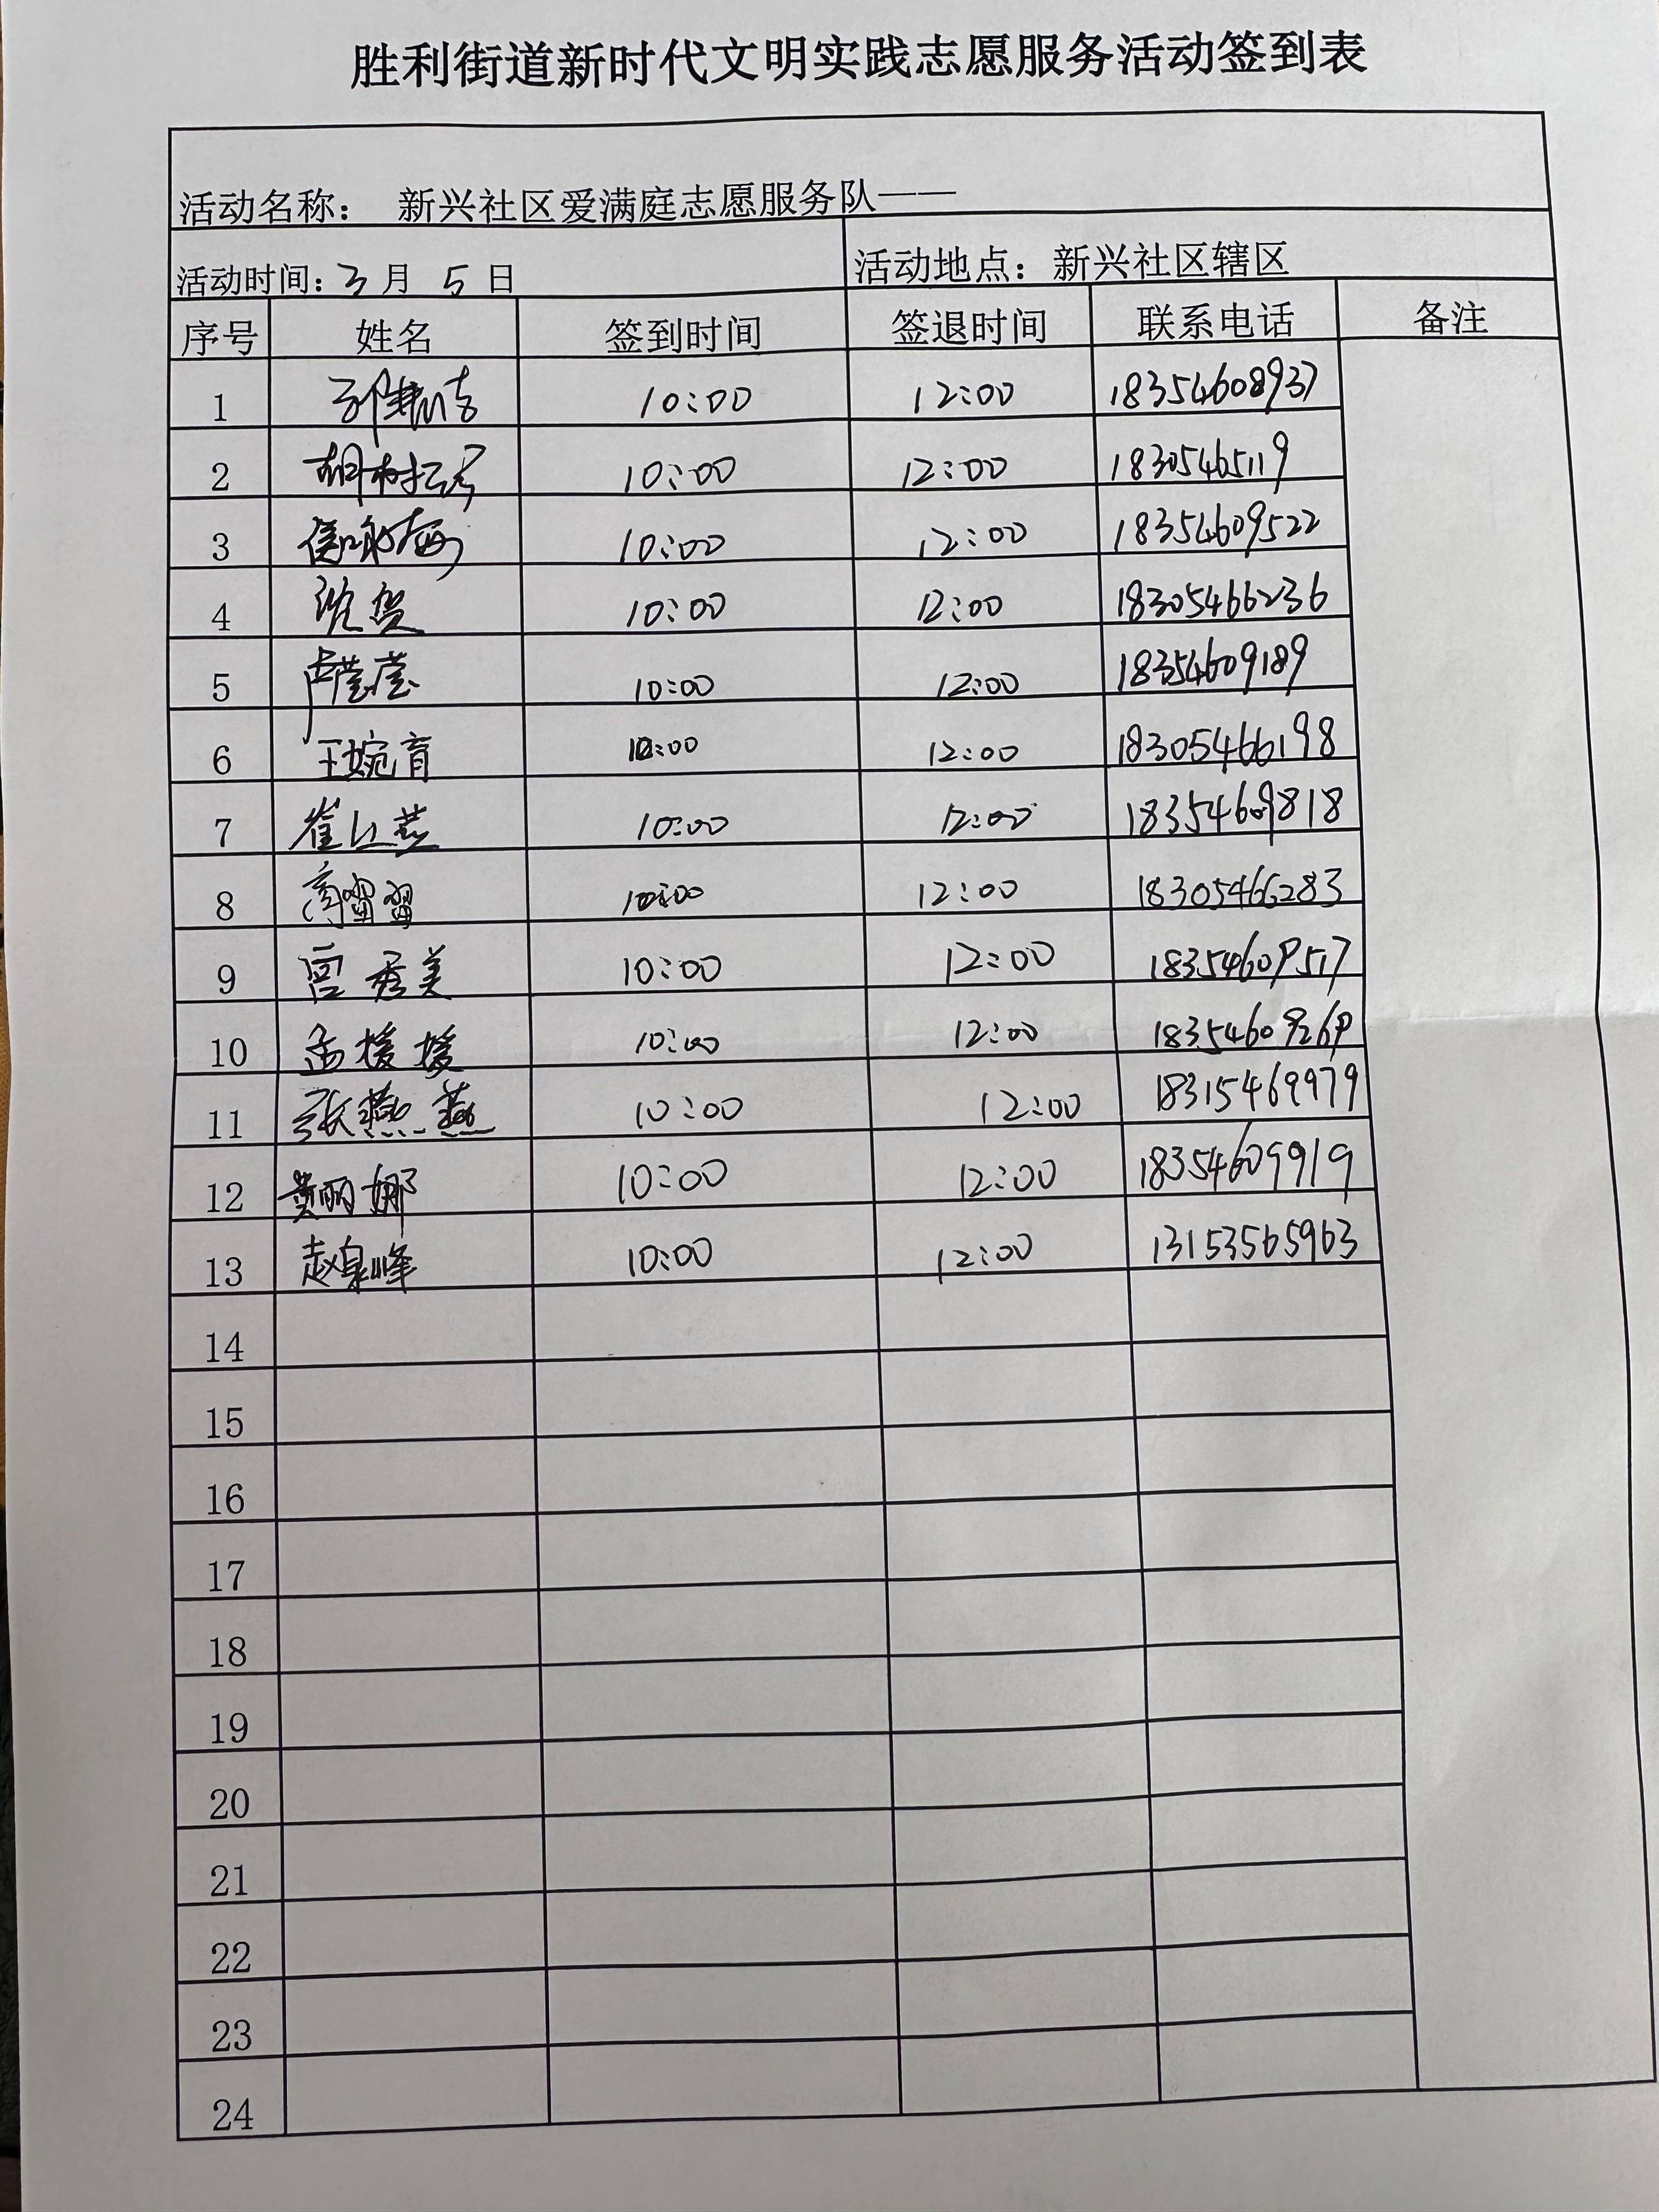 胜利街道新时代文明实践志愿服务活动签到表
活动名称： 新兴社区爱满庭志愿服务队——
活动时间：3月 5日 活动地点：新兴社区辖区
序号 姓名 签到时间 签退时间 联系电话 备注
1 10:00 12:00 18354608937
2 10:00 12:00 18305465119
3 10:00 12:00 18354609522
4 沈贺 10:00 12:00 18305466236
5 卢莹莹 10:00 12:00 18354609189
6 王婉育 10:00 12:00 18305466198
7 10:00 12:00 18354609818
8 10:00 12:00 18305466283
9 宫秀美 10:00 12:00 18354609517
10 孟媛媛 10:00 12:00 18354609269
11 张燕燕 10:00 12:00 18315469979
12 黄丽娜 10:00 12:00 18354609919
13 赵泉峰 10:00 12:00 13153565963
14
15
16
17
18
19
20
21
22
23
24